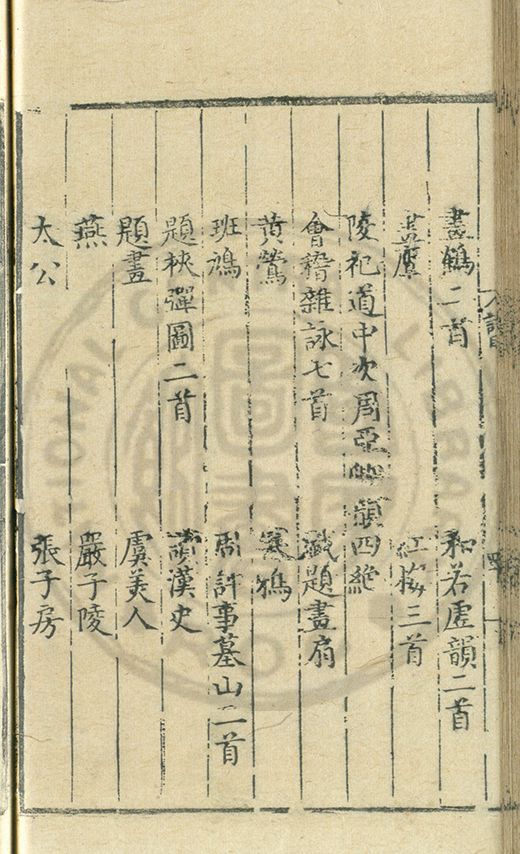 畫鶴二首 和若虛韻二首
畫鷹 紅梅三首
陵祀道中次周亞卿韻四絶
會稽雜詠七首 戲題畫扇
黃鶯 寒鴉
班鳩 周評事墓山二首
題挾彈圖二首 讀漢史
題畫 虞美人
燕 嚴子陵
太公 張子房